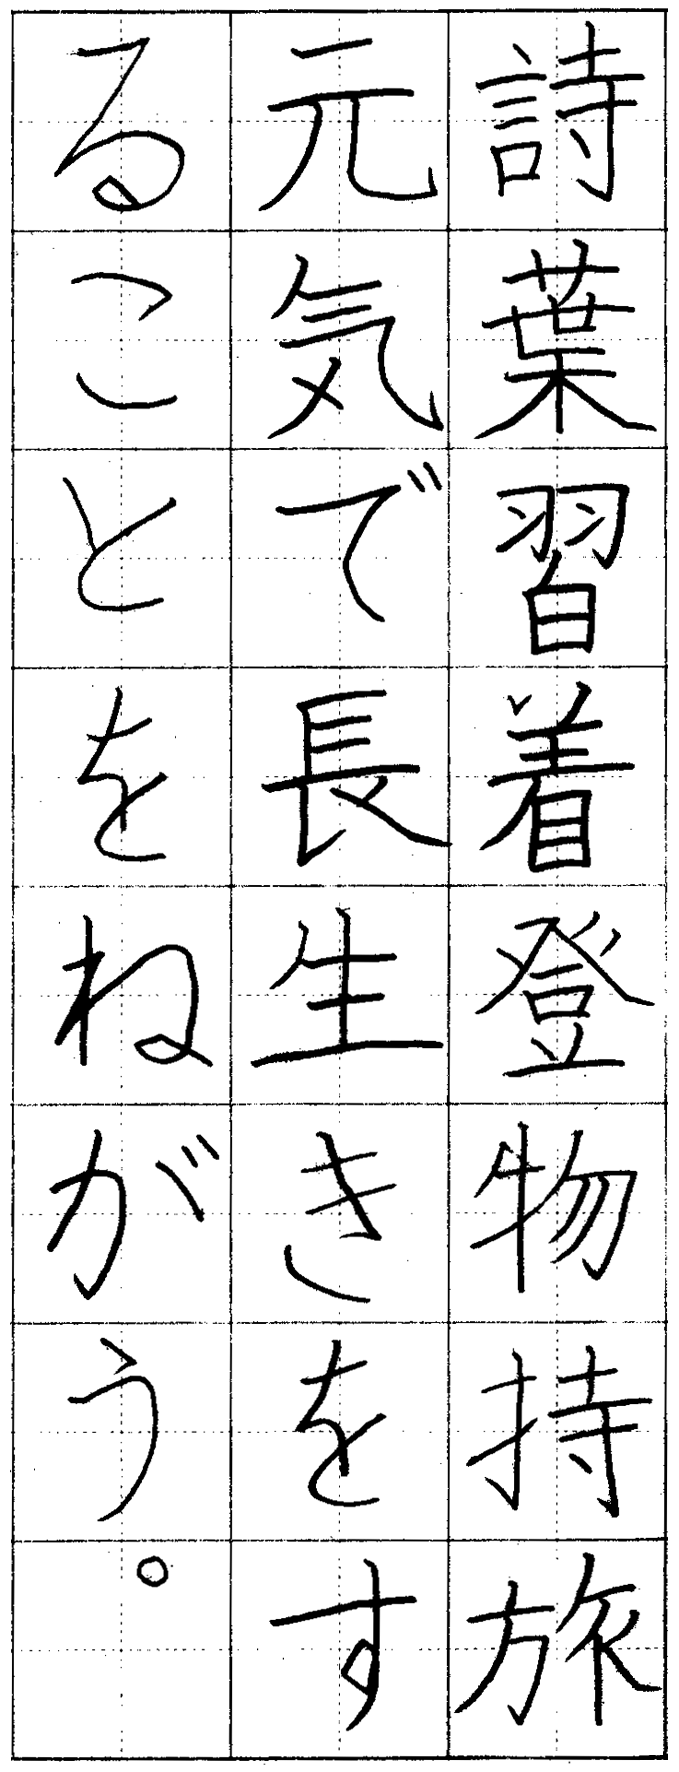 詩葉習着登物持旅
元気で長生きをす
ることをねがう。